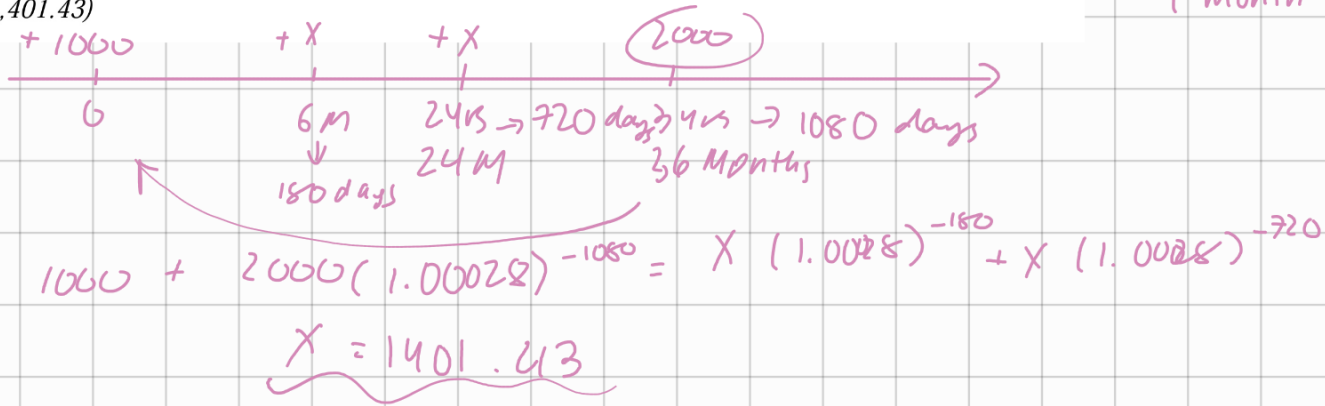 ,401.43)
1 Month
+ 1000 + X + X 2000
0 6 M 2 yrs → 720 days 3 yrs → 1080 days
↓ 24 M 36 Months
180 days
1000 + 2000(1.00028)^-1080 = X (1.00028)^-180 + X (1.00028)^-720
X = 1401.43